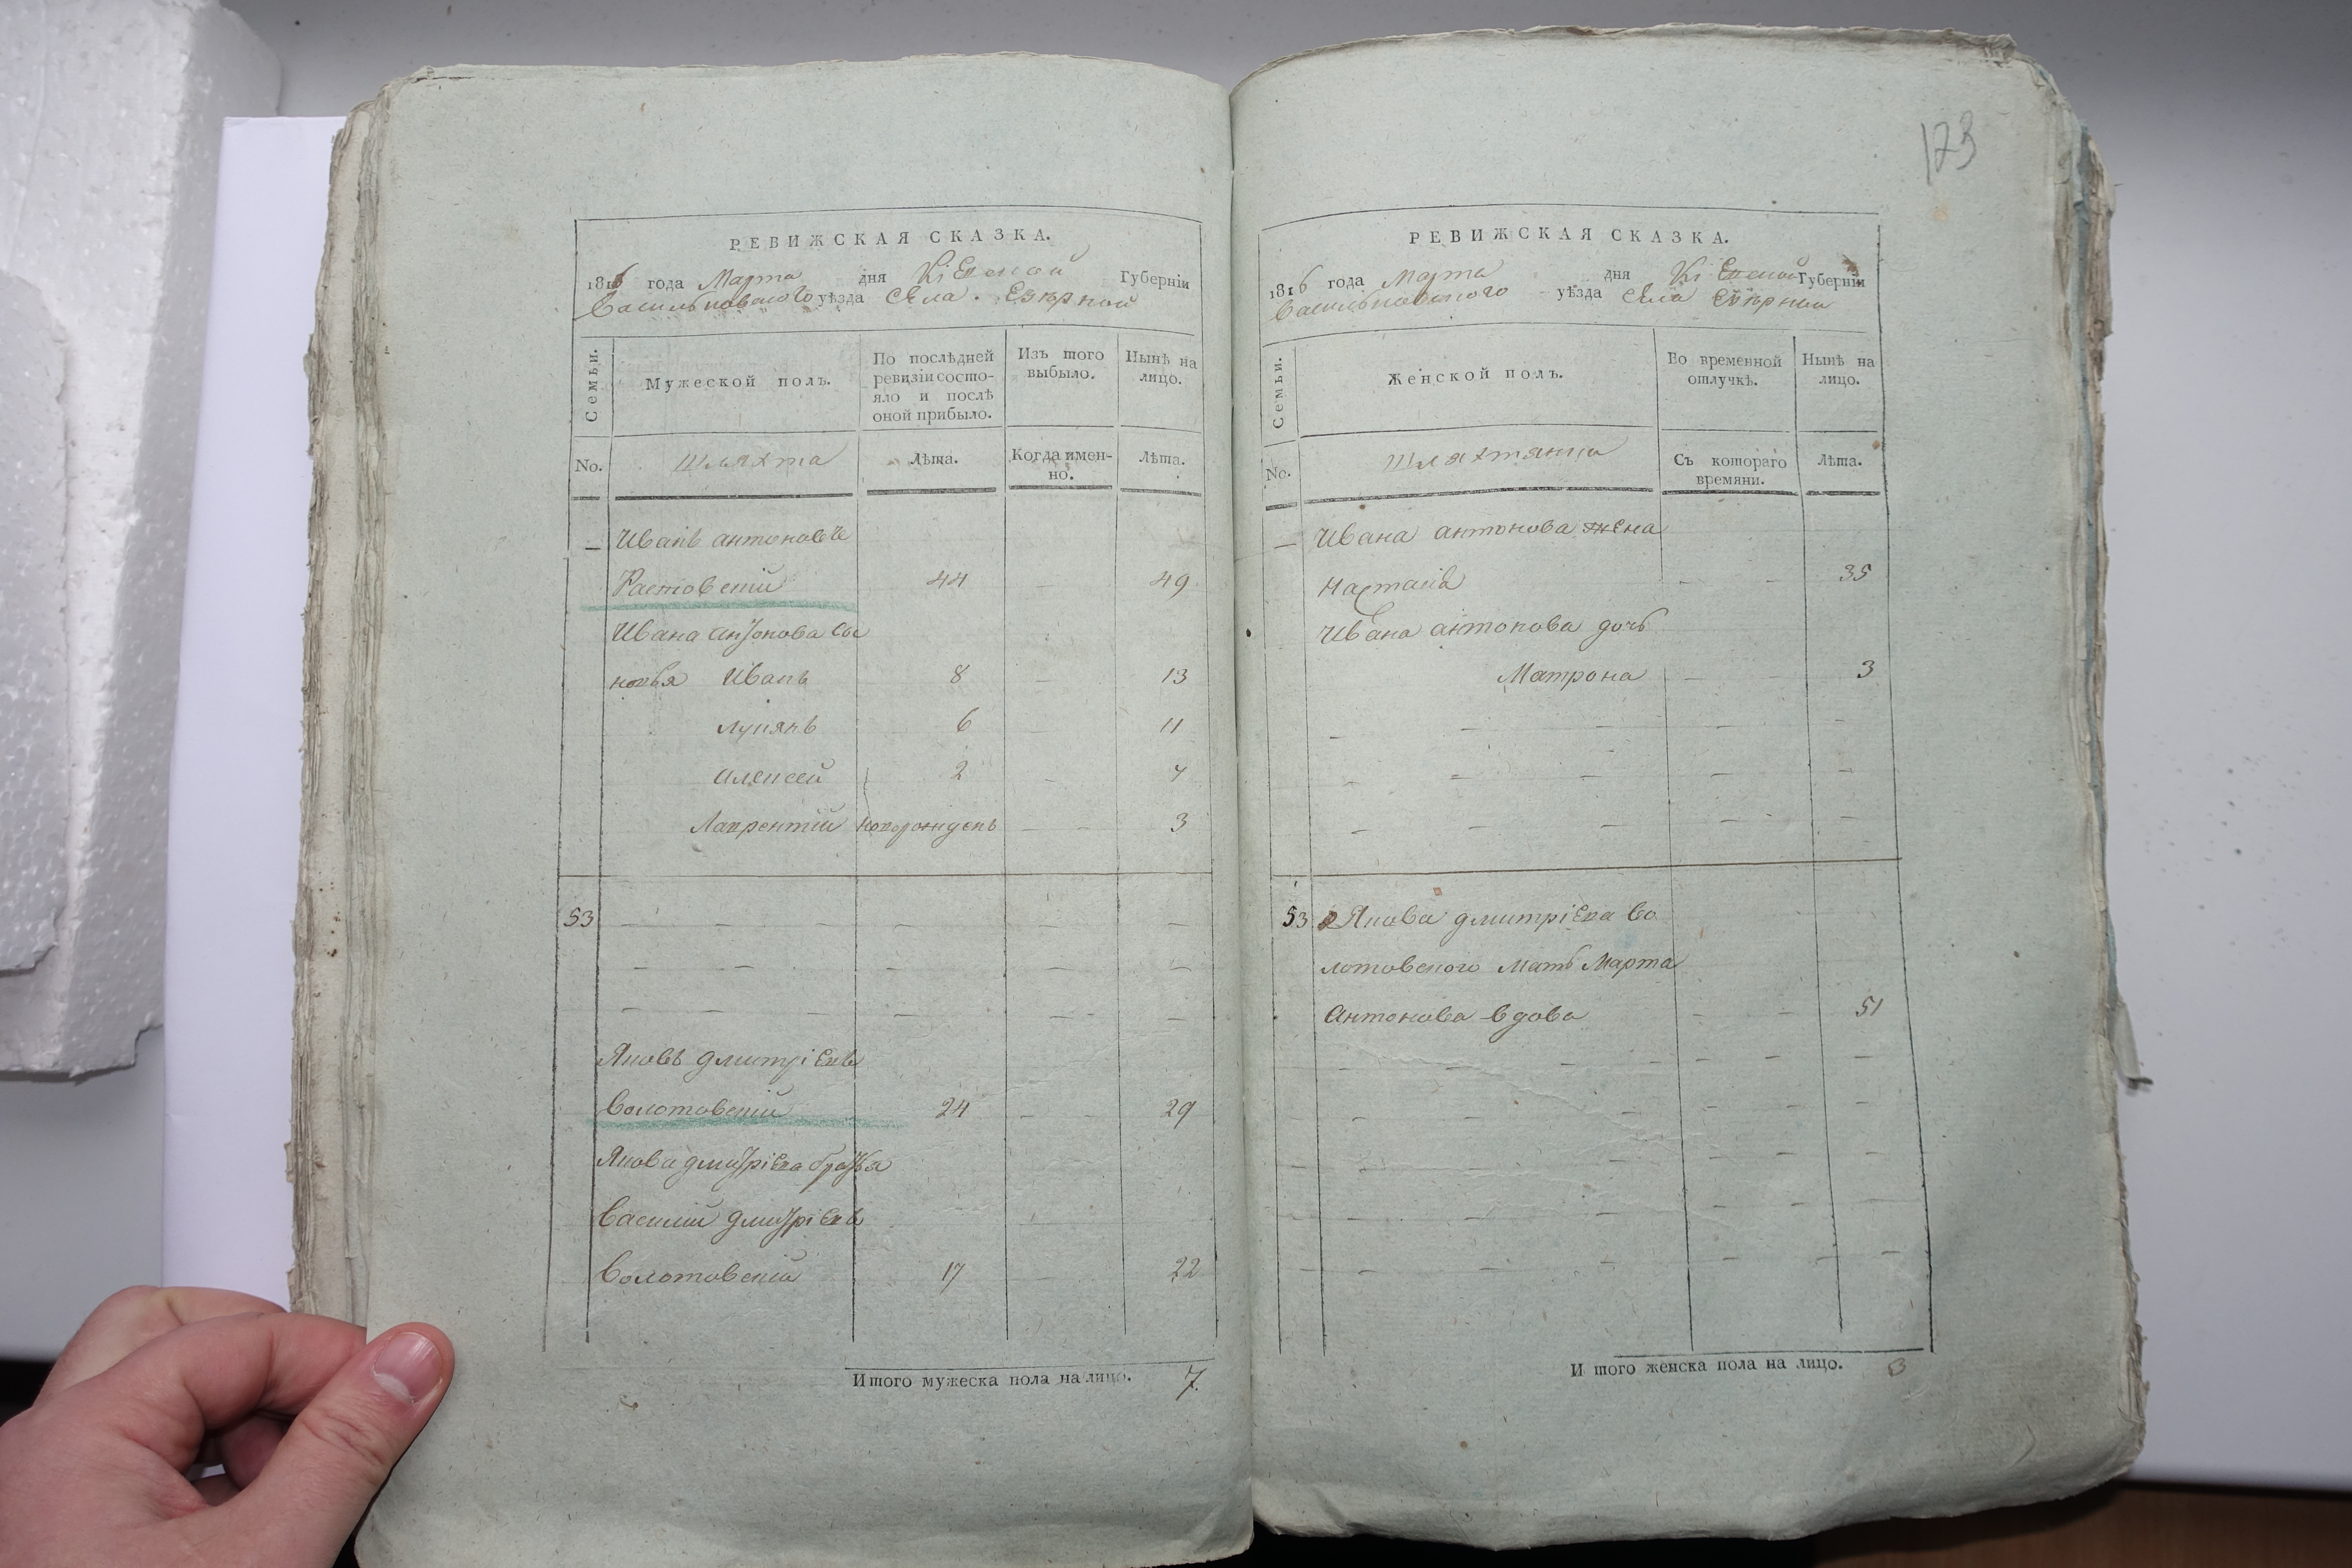 123
РЕВИЖСКАЯ СКАЗКА.
1816 года Марта дня Кіевской Губерніи
Васильковского уѣзда села Езѣрной
Семьи.
Мужеской полъ.
По послѣдней ревизіи состо-
яло и послѣ
оной прибыло.
Изъ того
выбыло.
Нынѣ на
лицо.
No.
Шляхта
Лѣта.
Когда имен-
но.
Лѣта.
Иванъ антоновъ
Растовскій 44 49
Ивана антонова сы
новья Иванъ 8 13
Лукянъ 6 11
Алексей 2 7
Лаврентій новорожденъ 3
53
Яковъ дмитріевъ
Волотовскій 24 29
Якова дмитріева братья
Василий дмитріевъ
Волотовскій 17 22
Итого мужеска пола на лицо. 7.
РЕВИЖСКАЯ СКАЗКА.
1816 года Марта дня Кіевской Губерніи
Васильковского уѣзда села Езѣрной
Семьи.
Женской полъ.
Во временной
отлучкѣ.
Нынѣ на
лицо.
No.
Шляхтянки
Съ котораго
времяни.
Лѣта.
Ивана антонова жена
Настасія 35
Ивана антонова дочь
Матрона 3
53 Якова дмитріева Во
лотовского мать Марта
Антонова вдова 51
Итого женска пола на лицо. 3